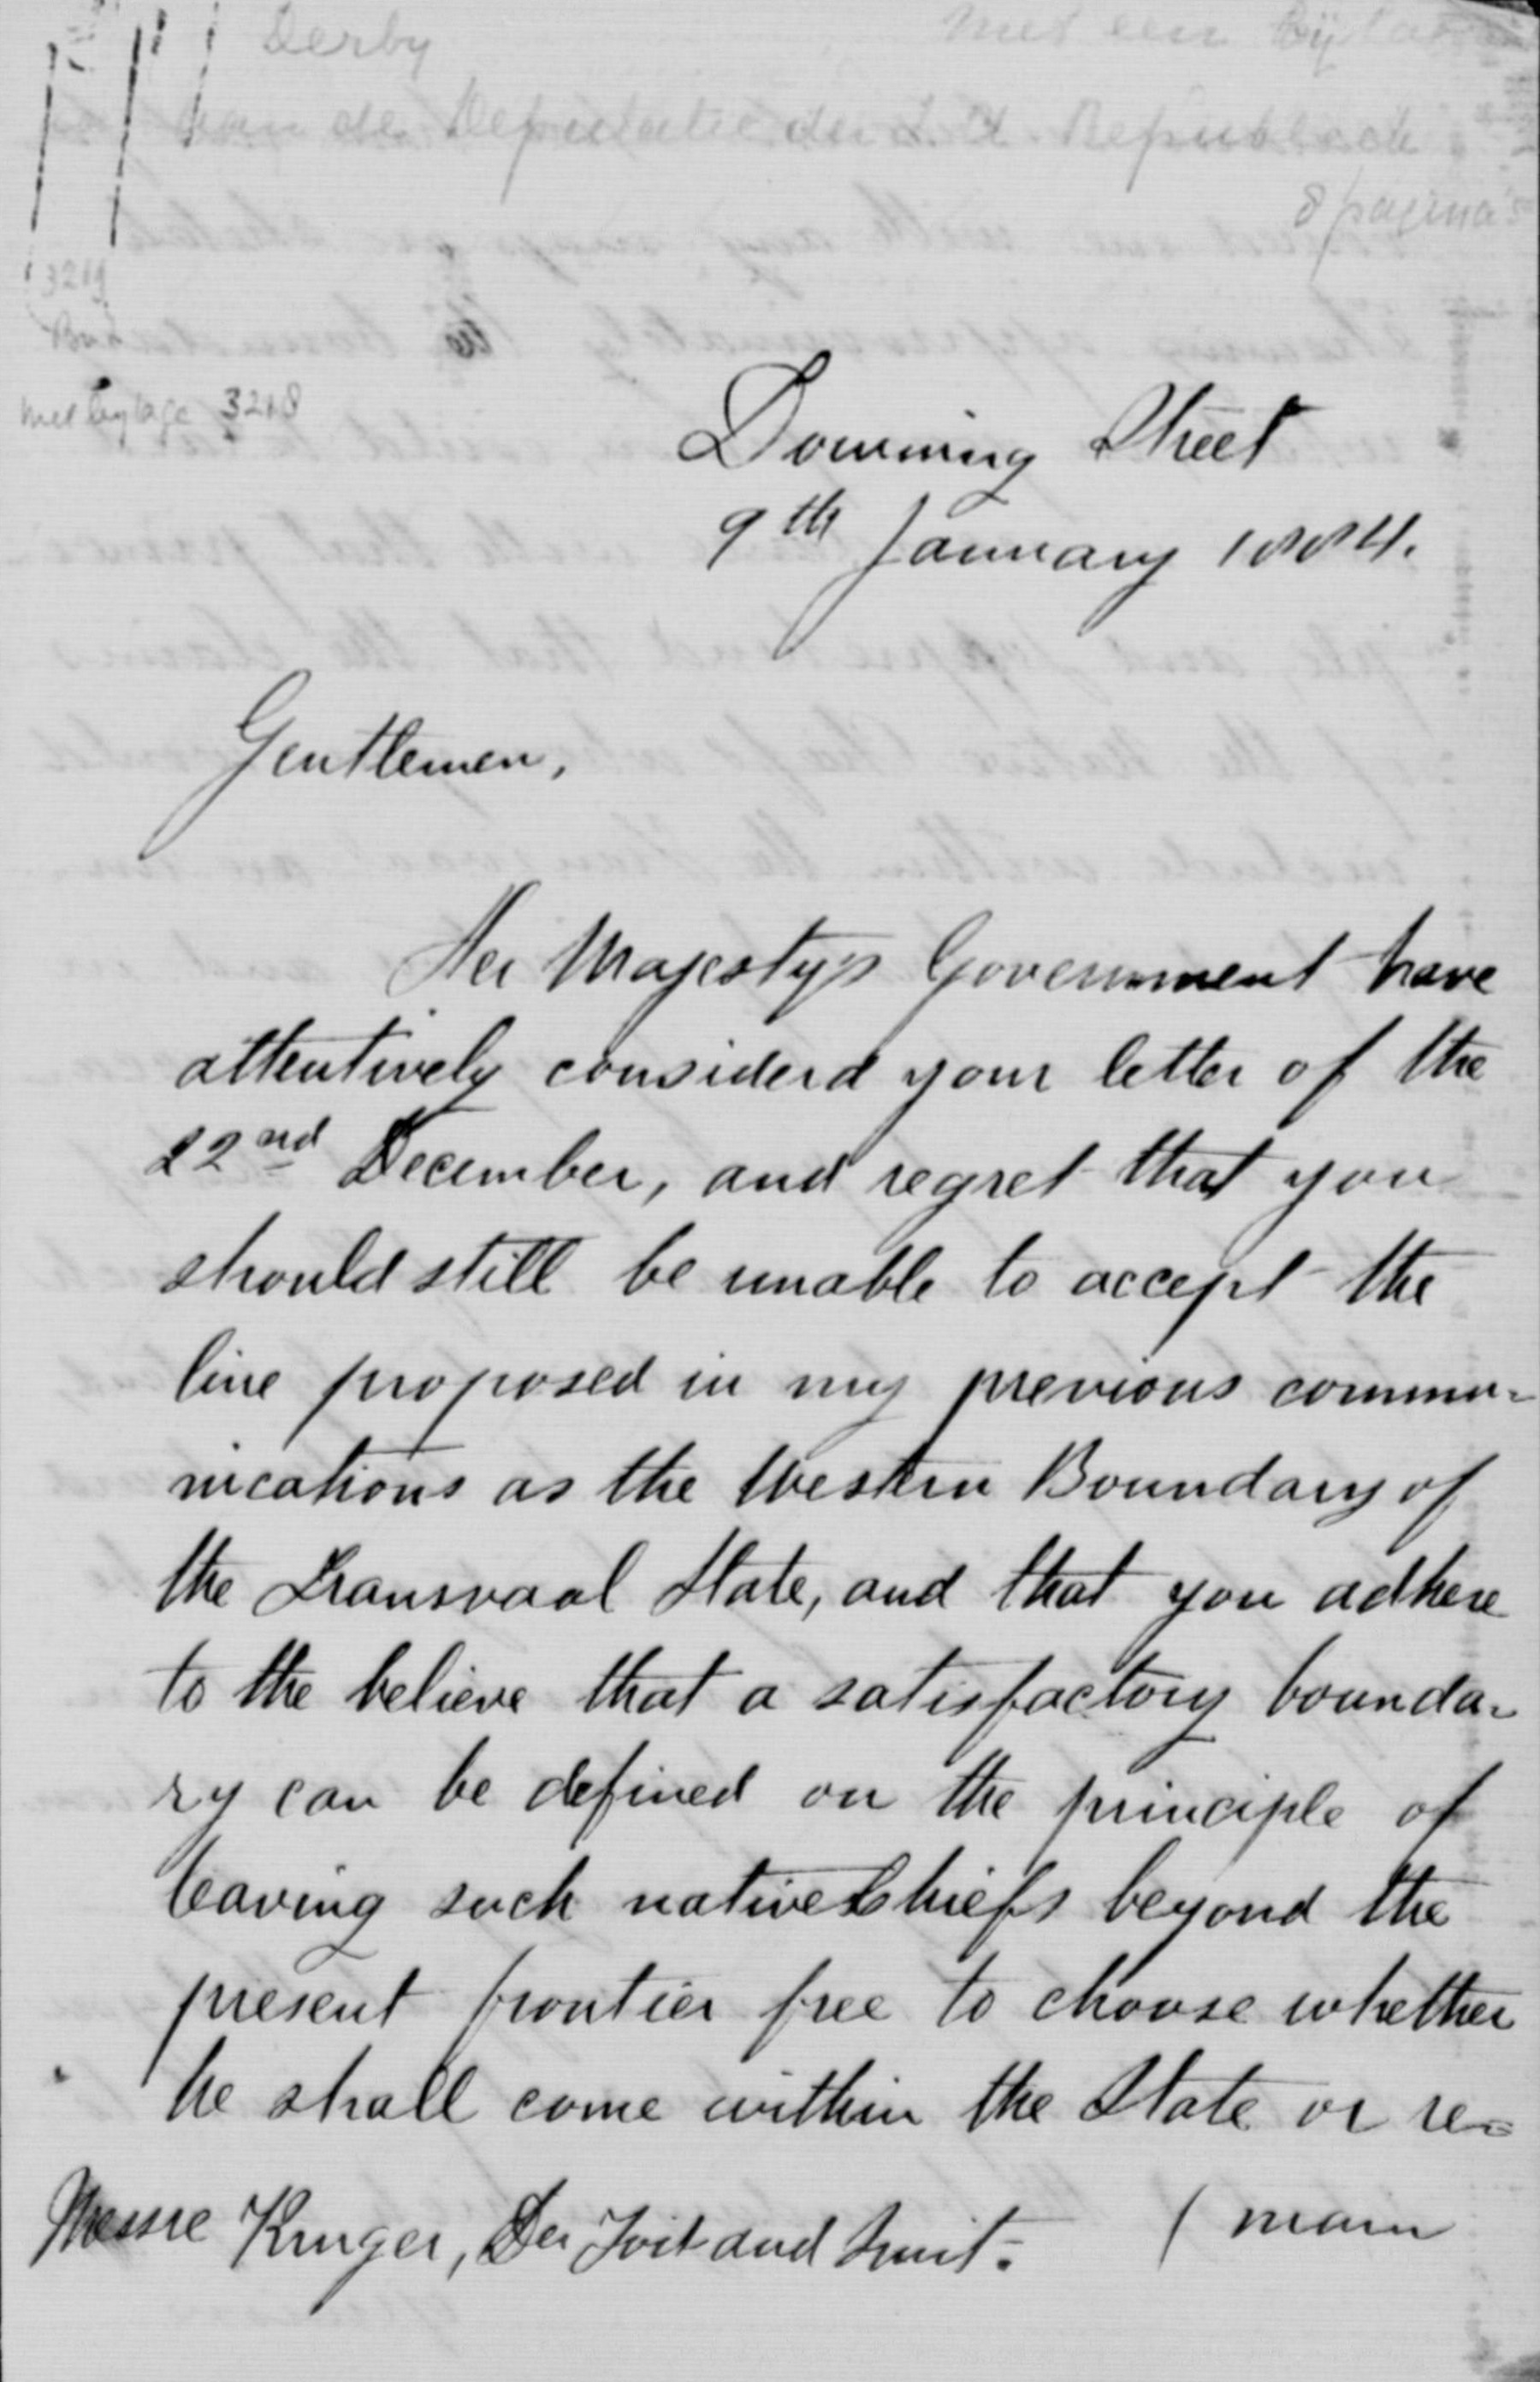 Derby
met een Bijlage
van de Deputatie der Z. A. Republiek
8 pagina's
3219
met bylage 3218
Downing Street
9th January 1884.
Gentlemen,
Her Majesty's Government have
attentively considerd your letter of the
22nd December, and regret that you
should still be unable to accept the
line proposed in my previous commu=
nications as the Western Boundary of
the Transvaal State, and that you adhere
to the believe that a satisfactory bounda=
ry can be defined on the principle of
leaving such native Chiefs beyond the
present frontier free to choose whether
he shall come within the State or re=
(main
Messre Kruger, Du Toit and Smit.